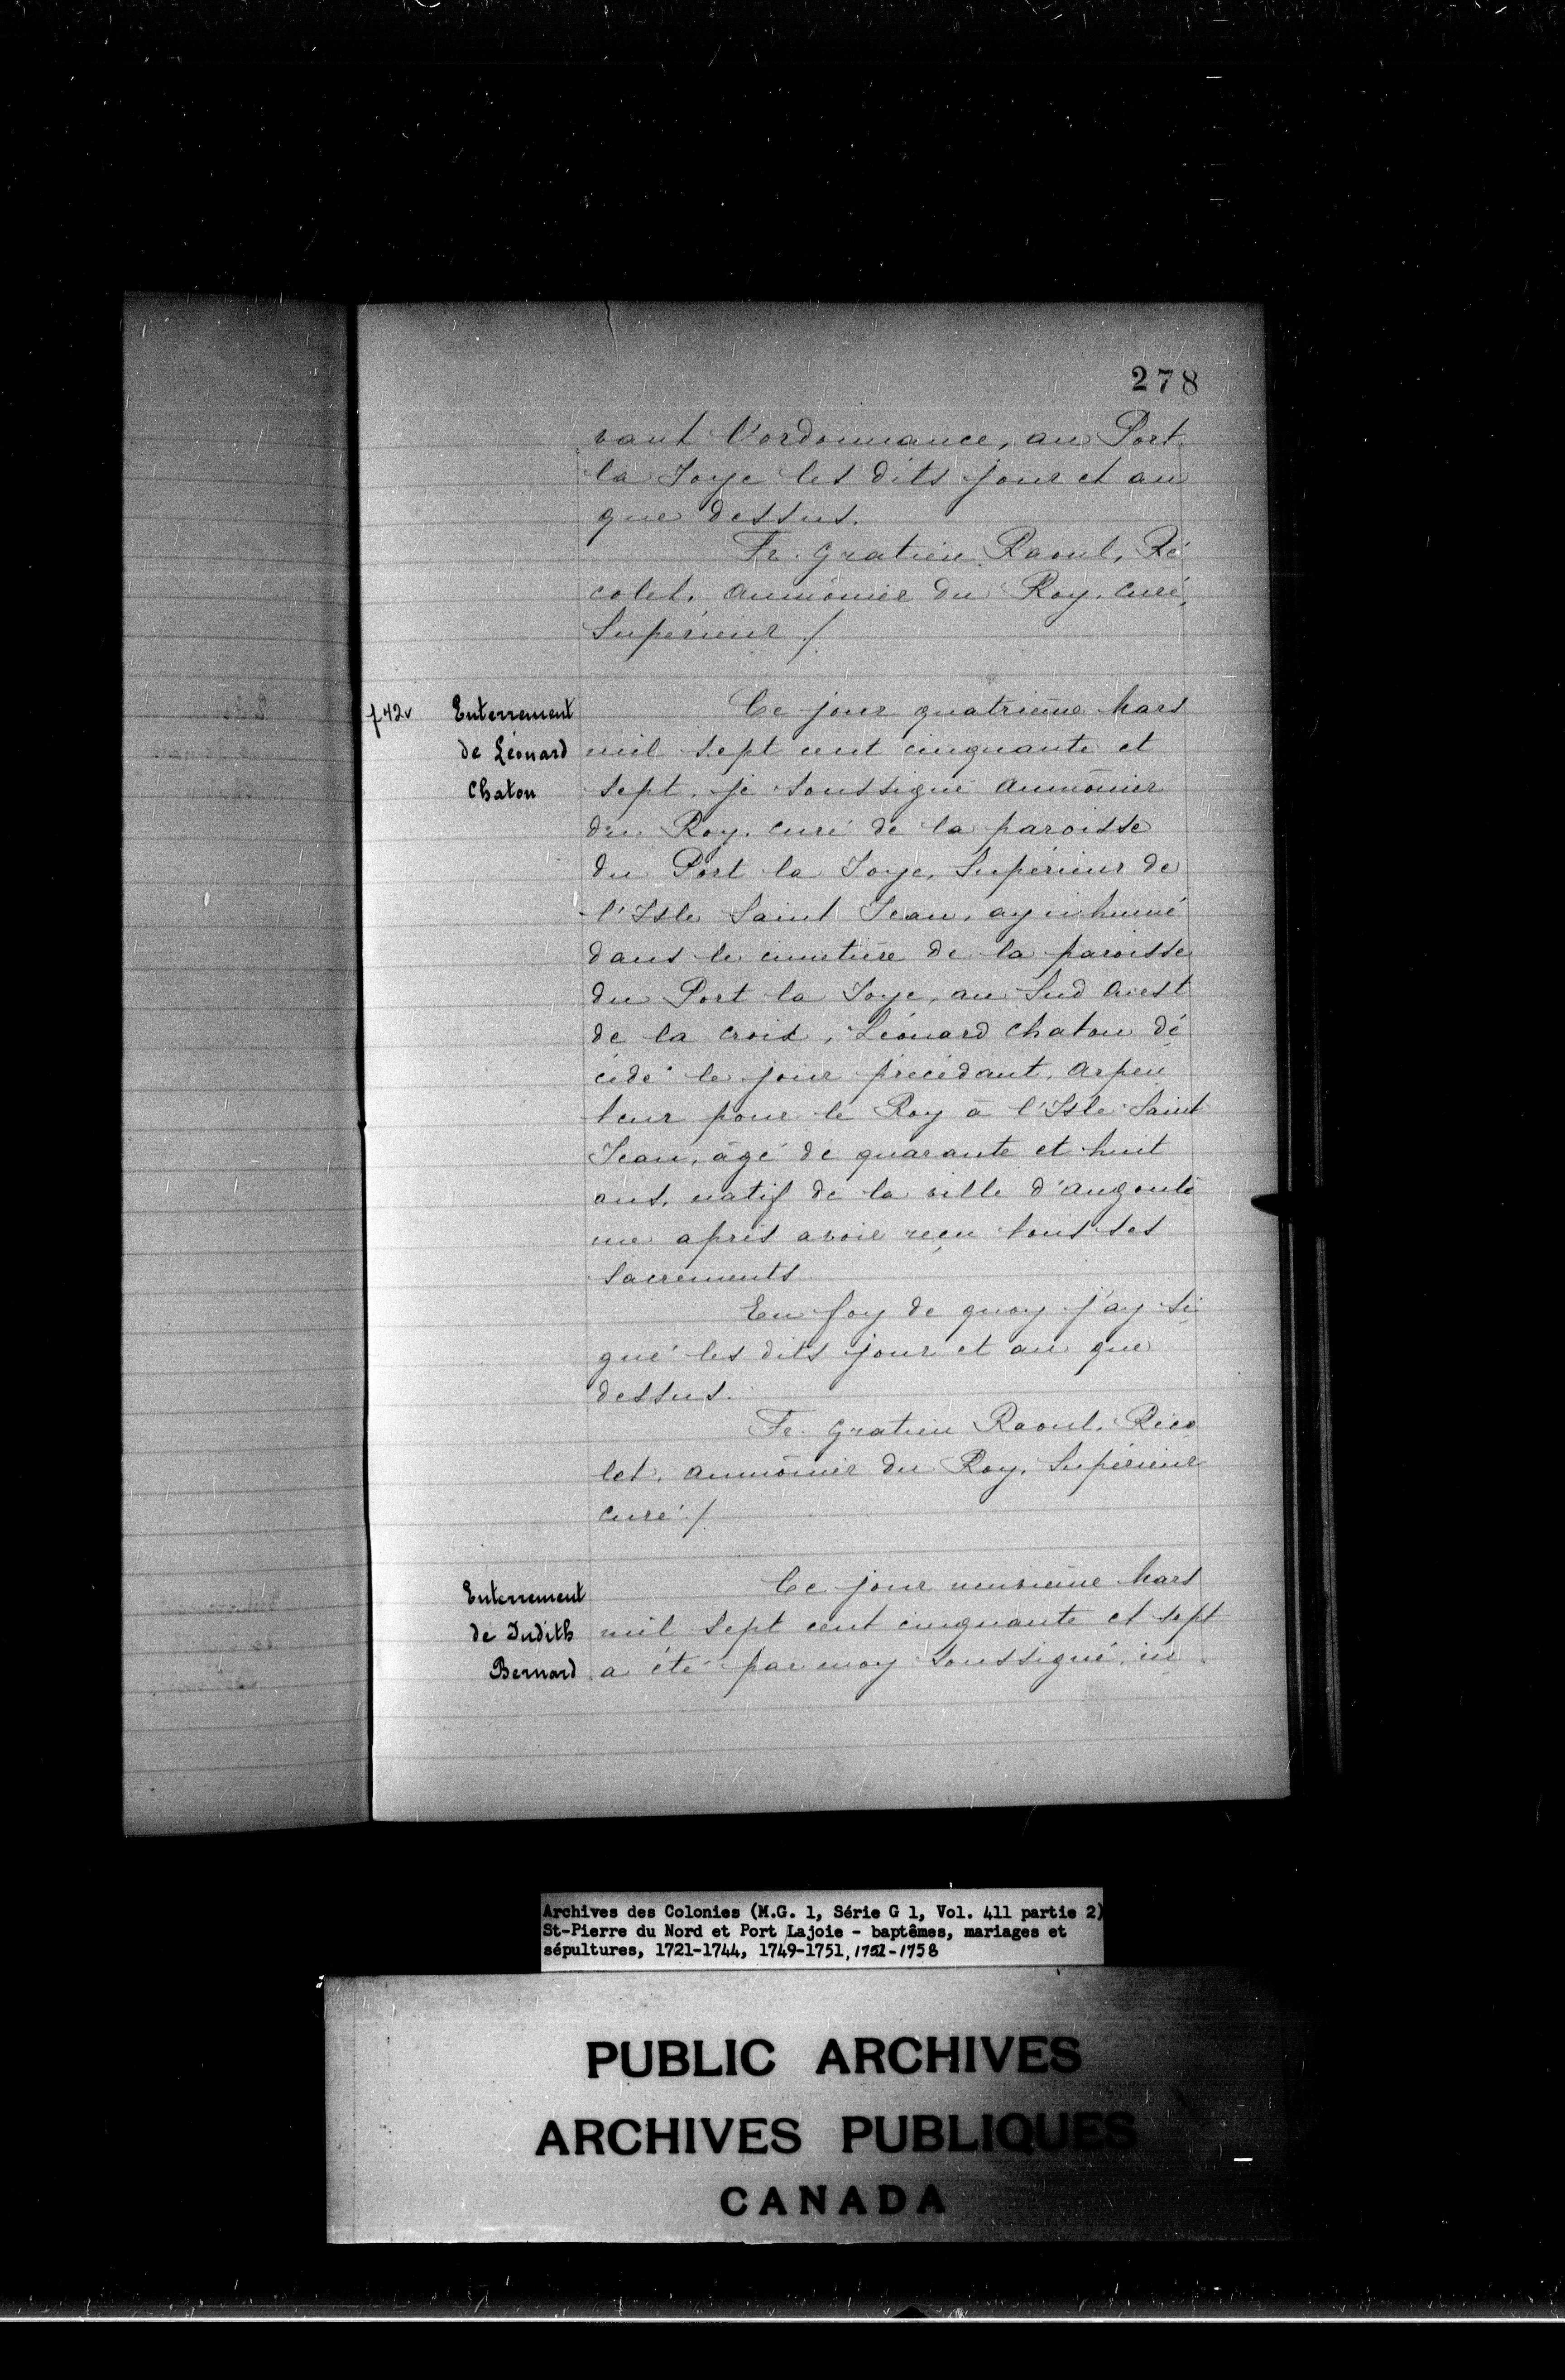 278
vant l'ordonnance, au Port
la Joye les dits jour et an
que dessus.
Fr. Gratien Raoul, Ré
colet, aumônier du Roy, curé,
Supérieur ./.
f 42v
Enterrement
de Léonard
Chaton
Ce jour quatrième Mars
mil sept cent cinquante et
sept, je soussigné aumônier
du Roy, curé de la paroisse
du Port la Joye, Supérieur de
l'Isle Saint Jean, ay inhumé
dans le cimetière de la paroisse
du Port la Joye, au Sud Ouest
de la croix, Léonard Chaton dé
cédé le jour précédant, arpen
teur pour le Roy à l'Isle Saint
Jean, âgé de quarante et huit
ans, natif de la ville d'Angoulê
me après avoir reçu tous ses
sacrements.
En foy de quoy j'ay si
gné les dits jour et an que
dessus.
Fr. Gratien Raoul, Réco
let, aumônier du Roy, Supérieur
curé ./.
Enterrement
de Judith
Bernard
Ce jour neuvième Mars
mil sept cent cinquante et sept
a été par moy soussigné, in
Archives des Colonies (M.G. 1, Série G 1, Vol. 411 partie 2)
St-Pierre du Nord et Port Lajoie - baptêmes, mariages et
sépultures, 1721-1744, 1749-1751, 1752-1758
PUBLIC ARCHIVES
ARCHIVES PUBLIQUES
CANADA